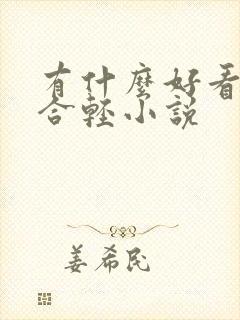 有什麼好看
合輕小說
姜希民